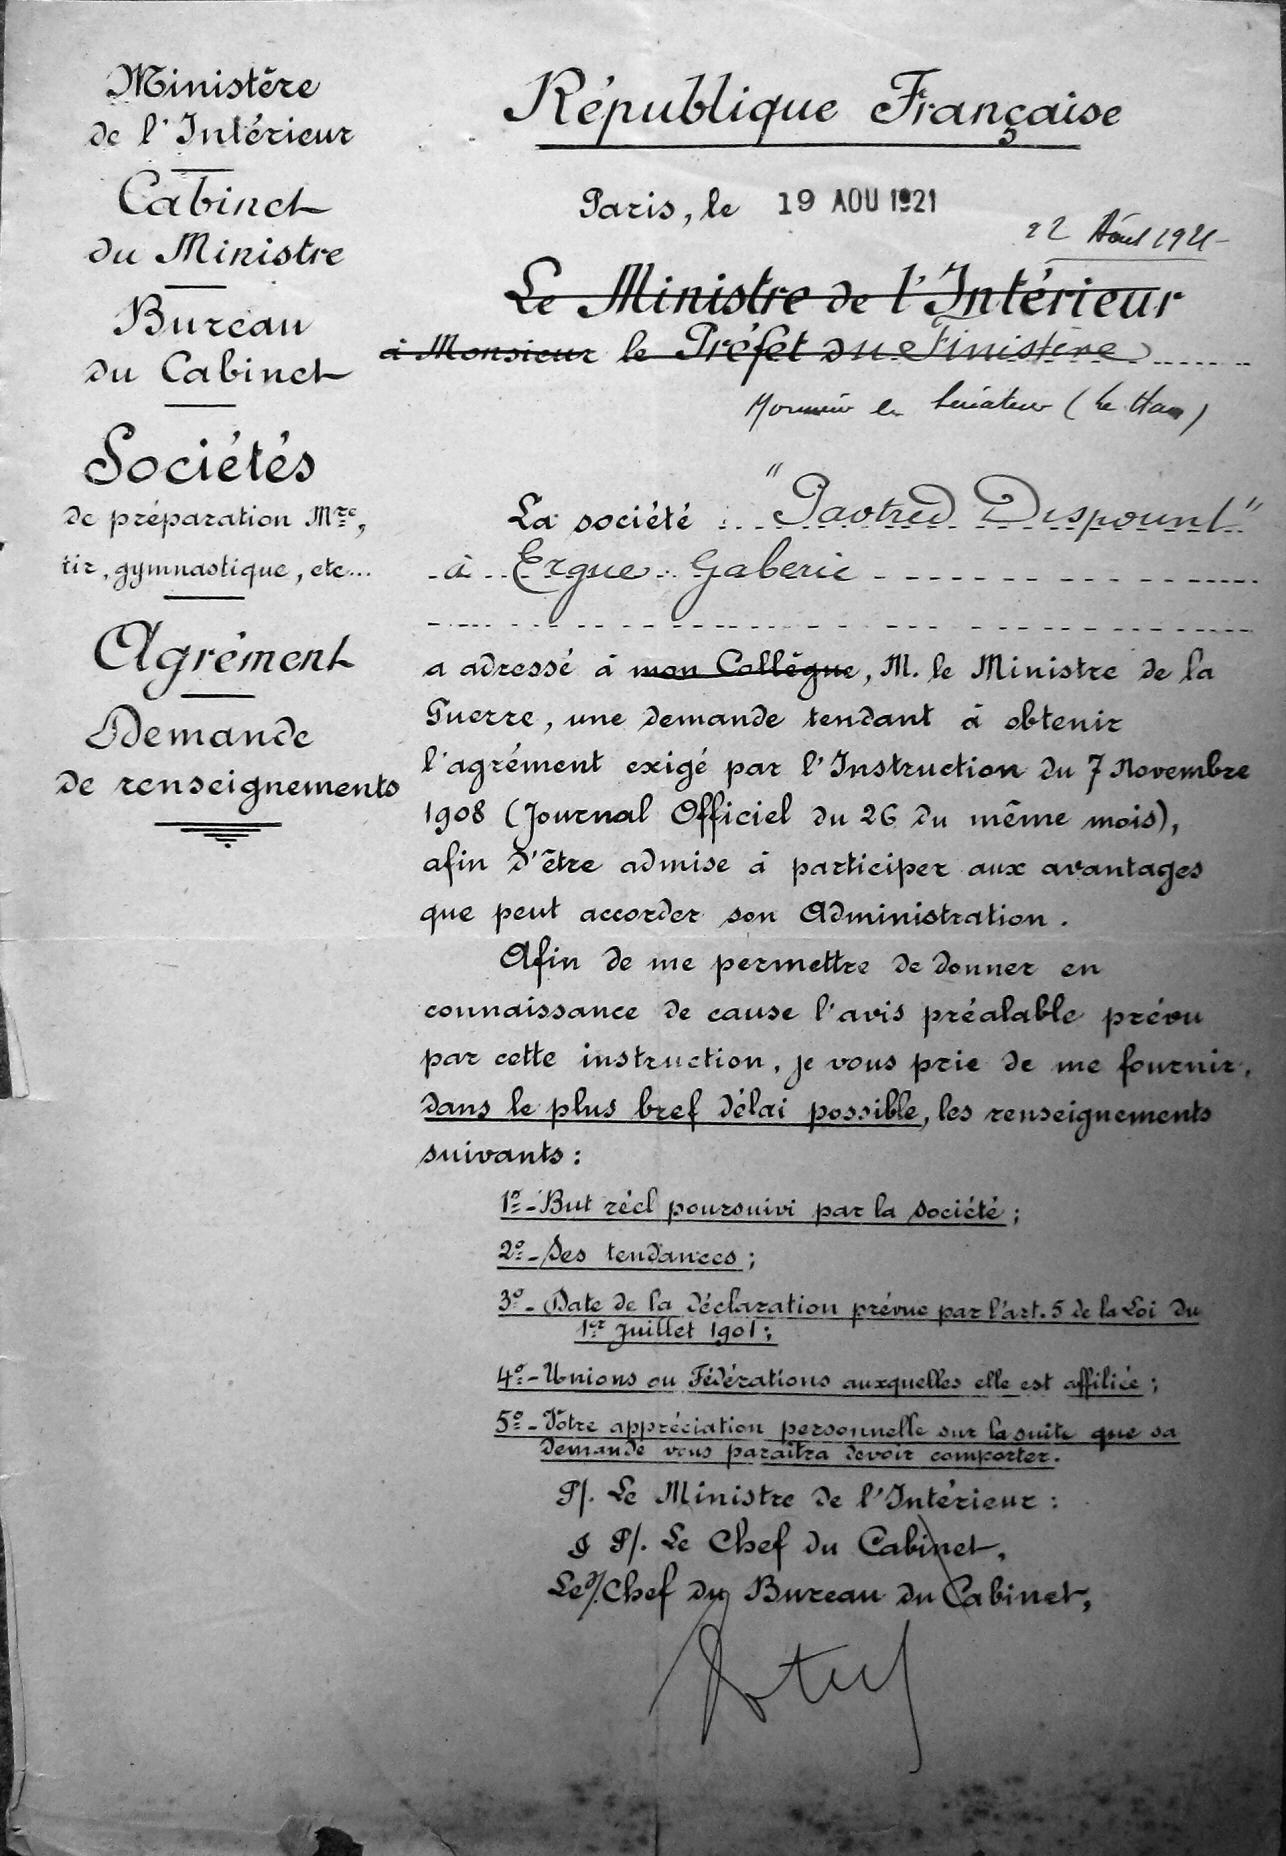 Ministère
de l'Intérieur
Cabinet
du Ministre
Bureau
du Cabinet
Sociétés
de préparation Mre,
tir, gymnastique, etc...
Agrément
Demande
de renseignements
République Française
Paris, le 19 AOU 1921
22 Août 1921
Le Ministre de l'Intérieur
à Monsieur le Préfet du Finistère
Monsieur le Sénateur (Le Hars)
La société "Paotred Dispount"
à Ergue Gaberic
a adressé à mon Collègue, M. le Ministre de la
Guerre, une demande tendant à obtenir
l'agrément exigé par l'Instruction du 7 Novembre
1908 (Journal Officiel du 26 du même mois),
afin d'être admise à participer aux avantages
que peut accorder son Administration.
Afin de me permettre de donner en
connaissance de cause l'avis préalable prévu
par cette instruction, je vous prie de me fournir,
dans le plus bref délai possible, les renseignements
suivants :
1º - But réel poursuivi par la société ;
2º - Ses tendances ;
3º - Date de la déclaration prévue par l'art. 5 de la Loi du
1er Juillet 1901 ;
4º - Unions ou Fédérations auxquelles elle est affiliée ;
5º - Votre appréciation personnelle sur la suite que sa
demande vous paraîtra devoir comporter.
P/. Le Ministre de l'Intérieur :
P/. Le Chef du Cabinet,
Le s/Chef du Bureau du Cabinet,